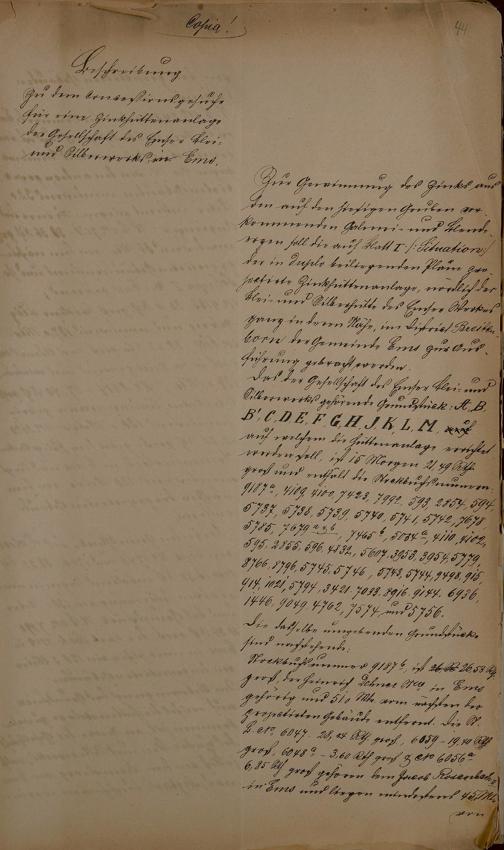 Copia!
44
Beschreibung
zu dem Concessionsgesuche
für eine Zinkhüttenanlage
der Gesellschaft des Emser Blei-
und Silberwerks in Ems.
Zur Gewinnung des Zinks aus
den auf den hiesigen Gruben vor-
kommenden Galmei- und Blende-
erzen soll die auf Blatt I /: Situation :/
der in duplo beiliegenden Pläne pro-
jectirte Zinkhüttenanlage, nördlich der
Blei- und Silberhütte des Emser Werkes
ganz in deren Nähe, im District
born der Gemeinde Ems zur Aus-
führung gebracht werden.
Das der Gesellschaft des Emser Blei- und
Silberwerks gehörende Grundstück: A, B,
B', C, D, E, F, G, H, J, K, L, M
auf welchem die Hüttenanlage errichtet
werden soll, ist 15 Morgen 21,49
groß und enthält die Stockbuchsnummern
9187a, 4109, 4100, 7423, 7992, 593, 2854, 594,
5737, 5738, 5739, 5740, 5741, 5742, 7678
5785, 7679 a & b, 7465 b, 5084 a, 4110, 4102,
595, 2855, 596, 4832, 5607, 3953, 3954, 5779,
8766, 8796, 5745, 5746, 5743, 5744, 9498, 915,
414, 1021, 5794, 3421, 7088, 8916, 9144, 6956,
1446, 9049, 4762, 7574 und 5756.
Die dasselbe umgebenden Grundstücke
sind nachstehende:
Stockbuchsnummer 9187 b, ist 26,53
groß, der Heinrich in Ems
gehörig und 510 vom nächsten der
projectirten Gebäude entfernt. Die
6047 - groß, 6059 - 19,40
groß. 6048 a - 3,60 groß & 6056 a
6,85 groß gehören dem Jacob
in Ems und liegen mindestens 45
von